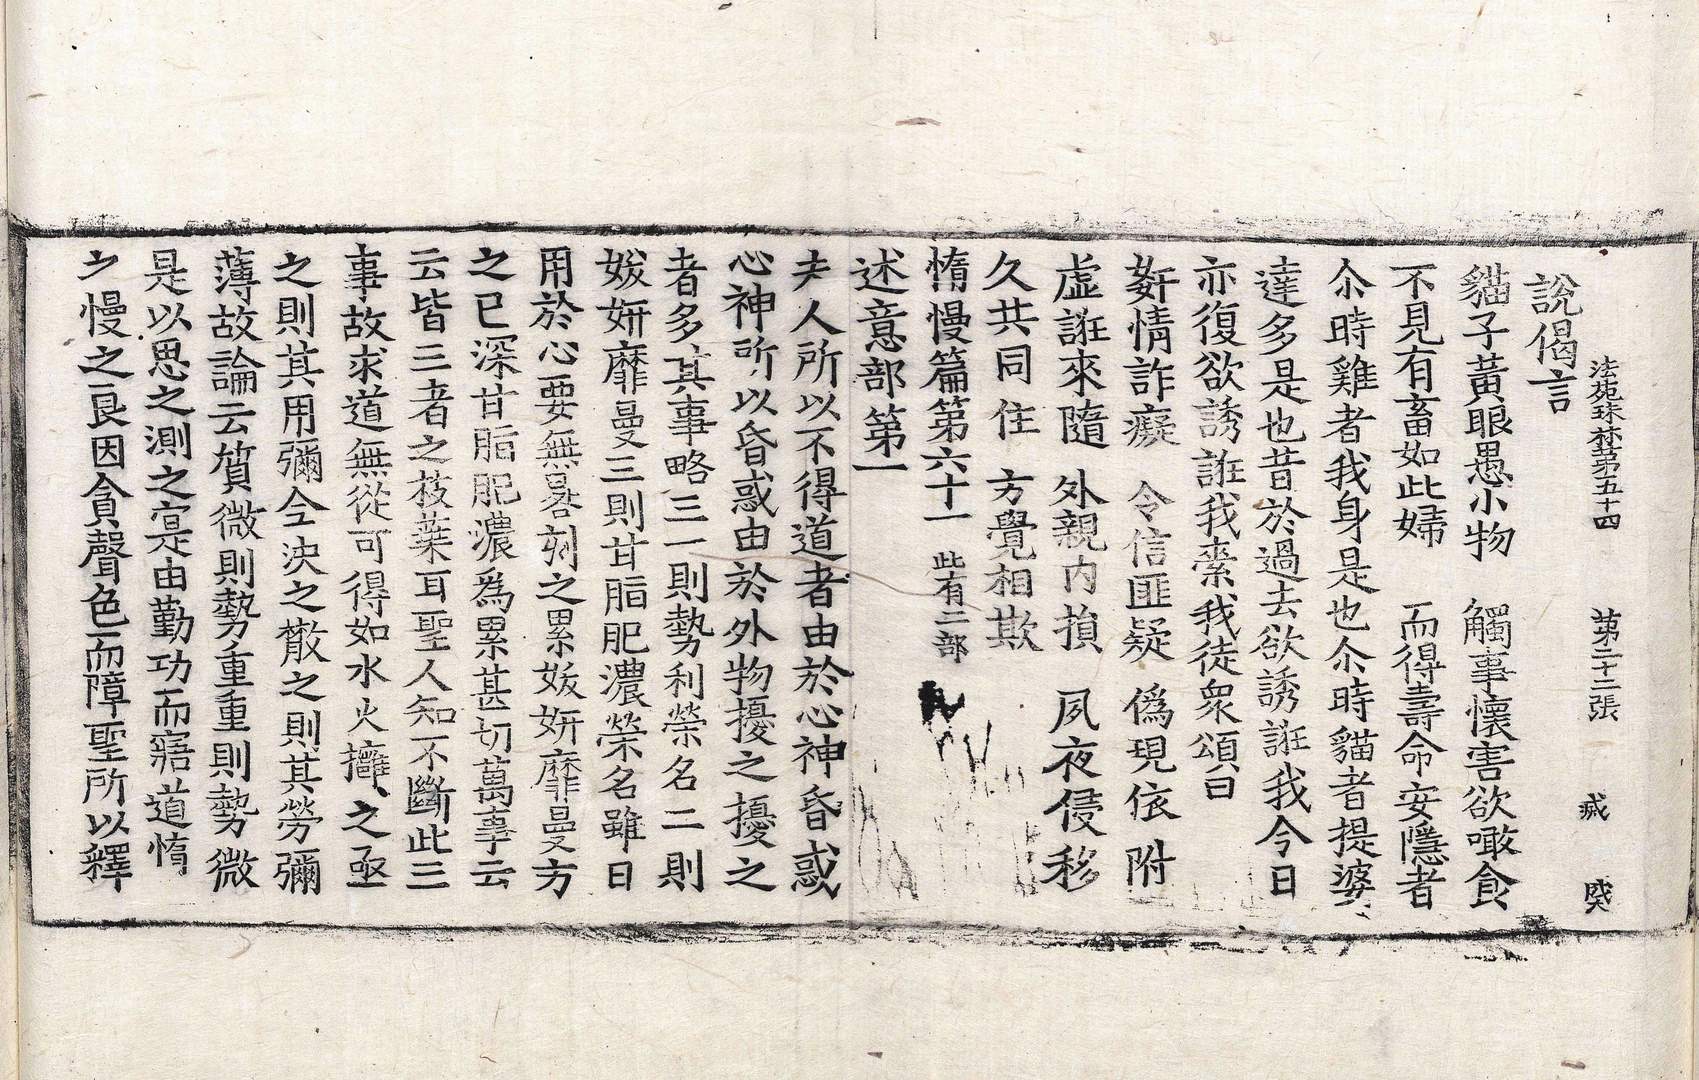 法苑珠林第五十四 第二十二張 㦸
說偈言
貓子黃眼愚小物 觸事懷害欲噉食
不見有畜如此婦 而得壽命安隱者
尒時雞者我身是也尒時貓者提婆
達多是也昔於過去欲誘誑我今日
亦復欲誘誑我索我徒衆頌曰
姧情詐癡 令信匪疑 僞現依附
虛誑來隨 外親內損 夙夜侵移
久共同住 方覺相欺
惰慢篇第六十一 此有二部
述意部第一
夫人所以不得道者由於心神昏惑
心神所以昏惑由於外物擾之擾之
者多其事略三一則勢利榮名二則
妭妍靡曼三則甘脂肥濃榮名雖日
用於心要無晷刻之累妭妍靡曼方
之已深甘脂肥濃爲累甚切萬事云
云皆三者之枝葉耳聖人知不斷此三
事故求道無從可得如水火擁之聚
之則其用彌全決之散之則其勞彌
薄故論云質微則勢重重則勢微
是以思之測之寔由勤功而寤道惰
之慢之良因貪聲色而障聖所以釋